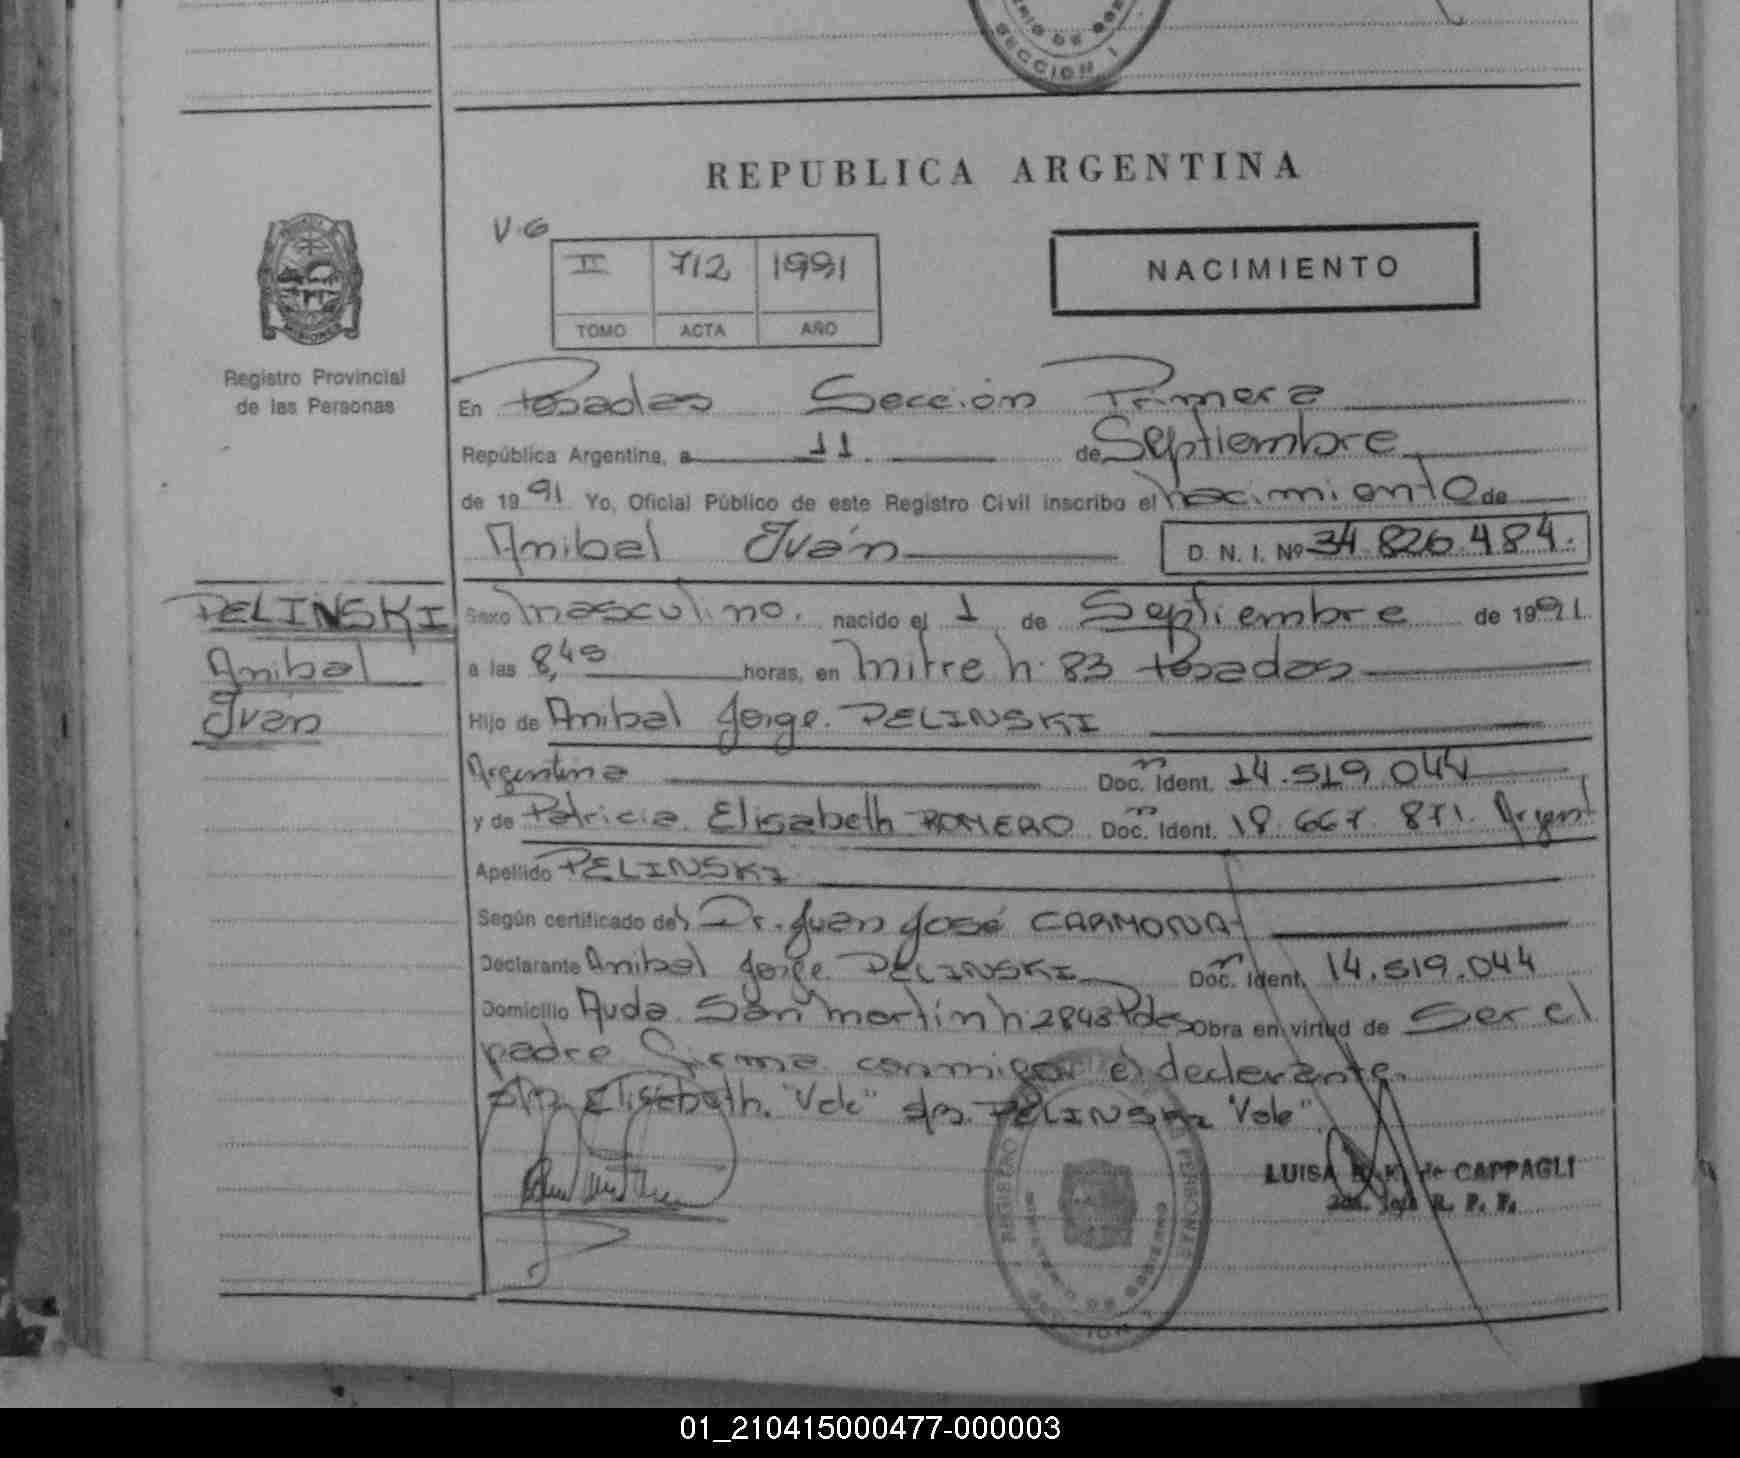 SECCION I
REPUBLICA ARGENTINA
V.G
II 712 1991
TOMO ACTA AÑO
NACIMIENTO
Registro Provincial
de las Personas
En Posadas Sección Primera
República Argentina, a 11 de Septiembre
de 1991 Yo, Oficial Público de este Registro Civil inscribo el nacimiento de
Anibal Iván D. N. I. Nº 34.826.484.
PELINSKI
Anibal
Iván
Sexo masculino. nacido el 1 de Septiembre de 1991.
a las 8,45 horas, en mitre n. 83 Posadas
Hijo de Anibal Jorge. PELINSKI
Argentina Doc. Ident. 14.519.044
y de Patricia Elisabeth ROMERO Doc. Ident. 18.667.871. Argent
Apellido PELINSKI
Según certificado del Dr. Juan José CARMONA
Declarante Anibal Jorge PELINSKI Doc. Ident. 14.519.044
Domicilio Avda. San martín n 2848 Pdas Obra en virtud de Ser el
padre firma conmigo el declarante.
s/r. Elisabeth. "Vale" s/r. PELINSKI "Vale"
LUISA de CAPPAGLI
R. P. P.
REGISTRO PERSONAS
MINISTERIO DE GOBIERNO
SECCION I
01_210415000477-000003